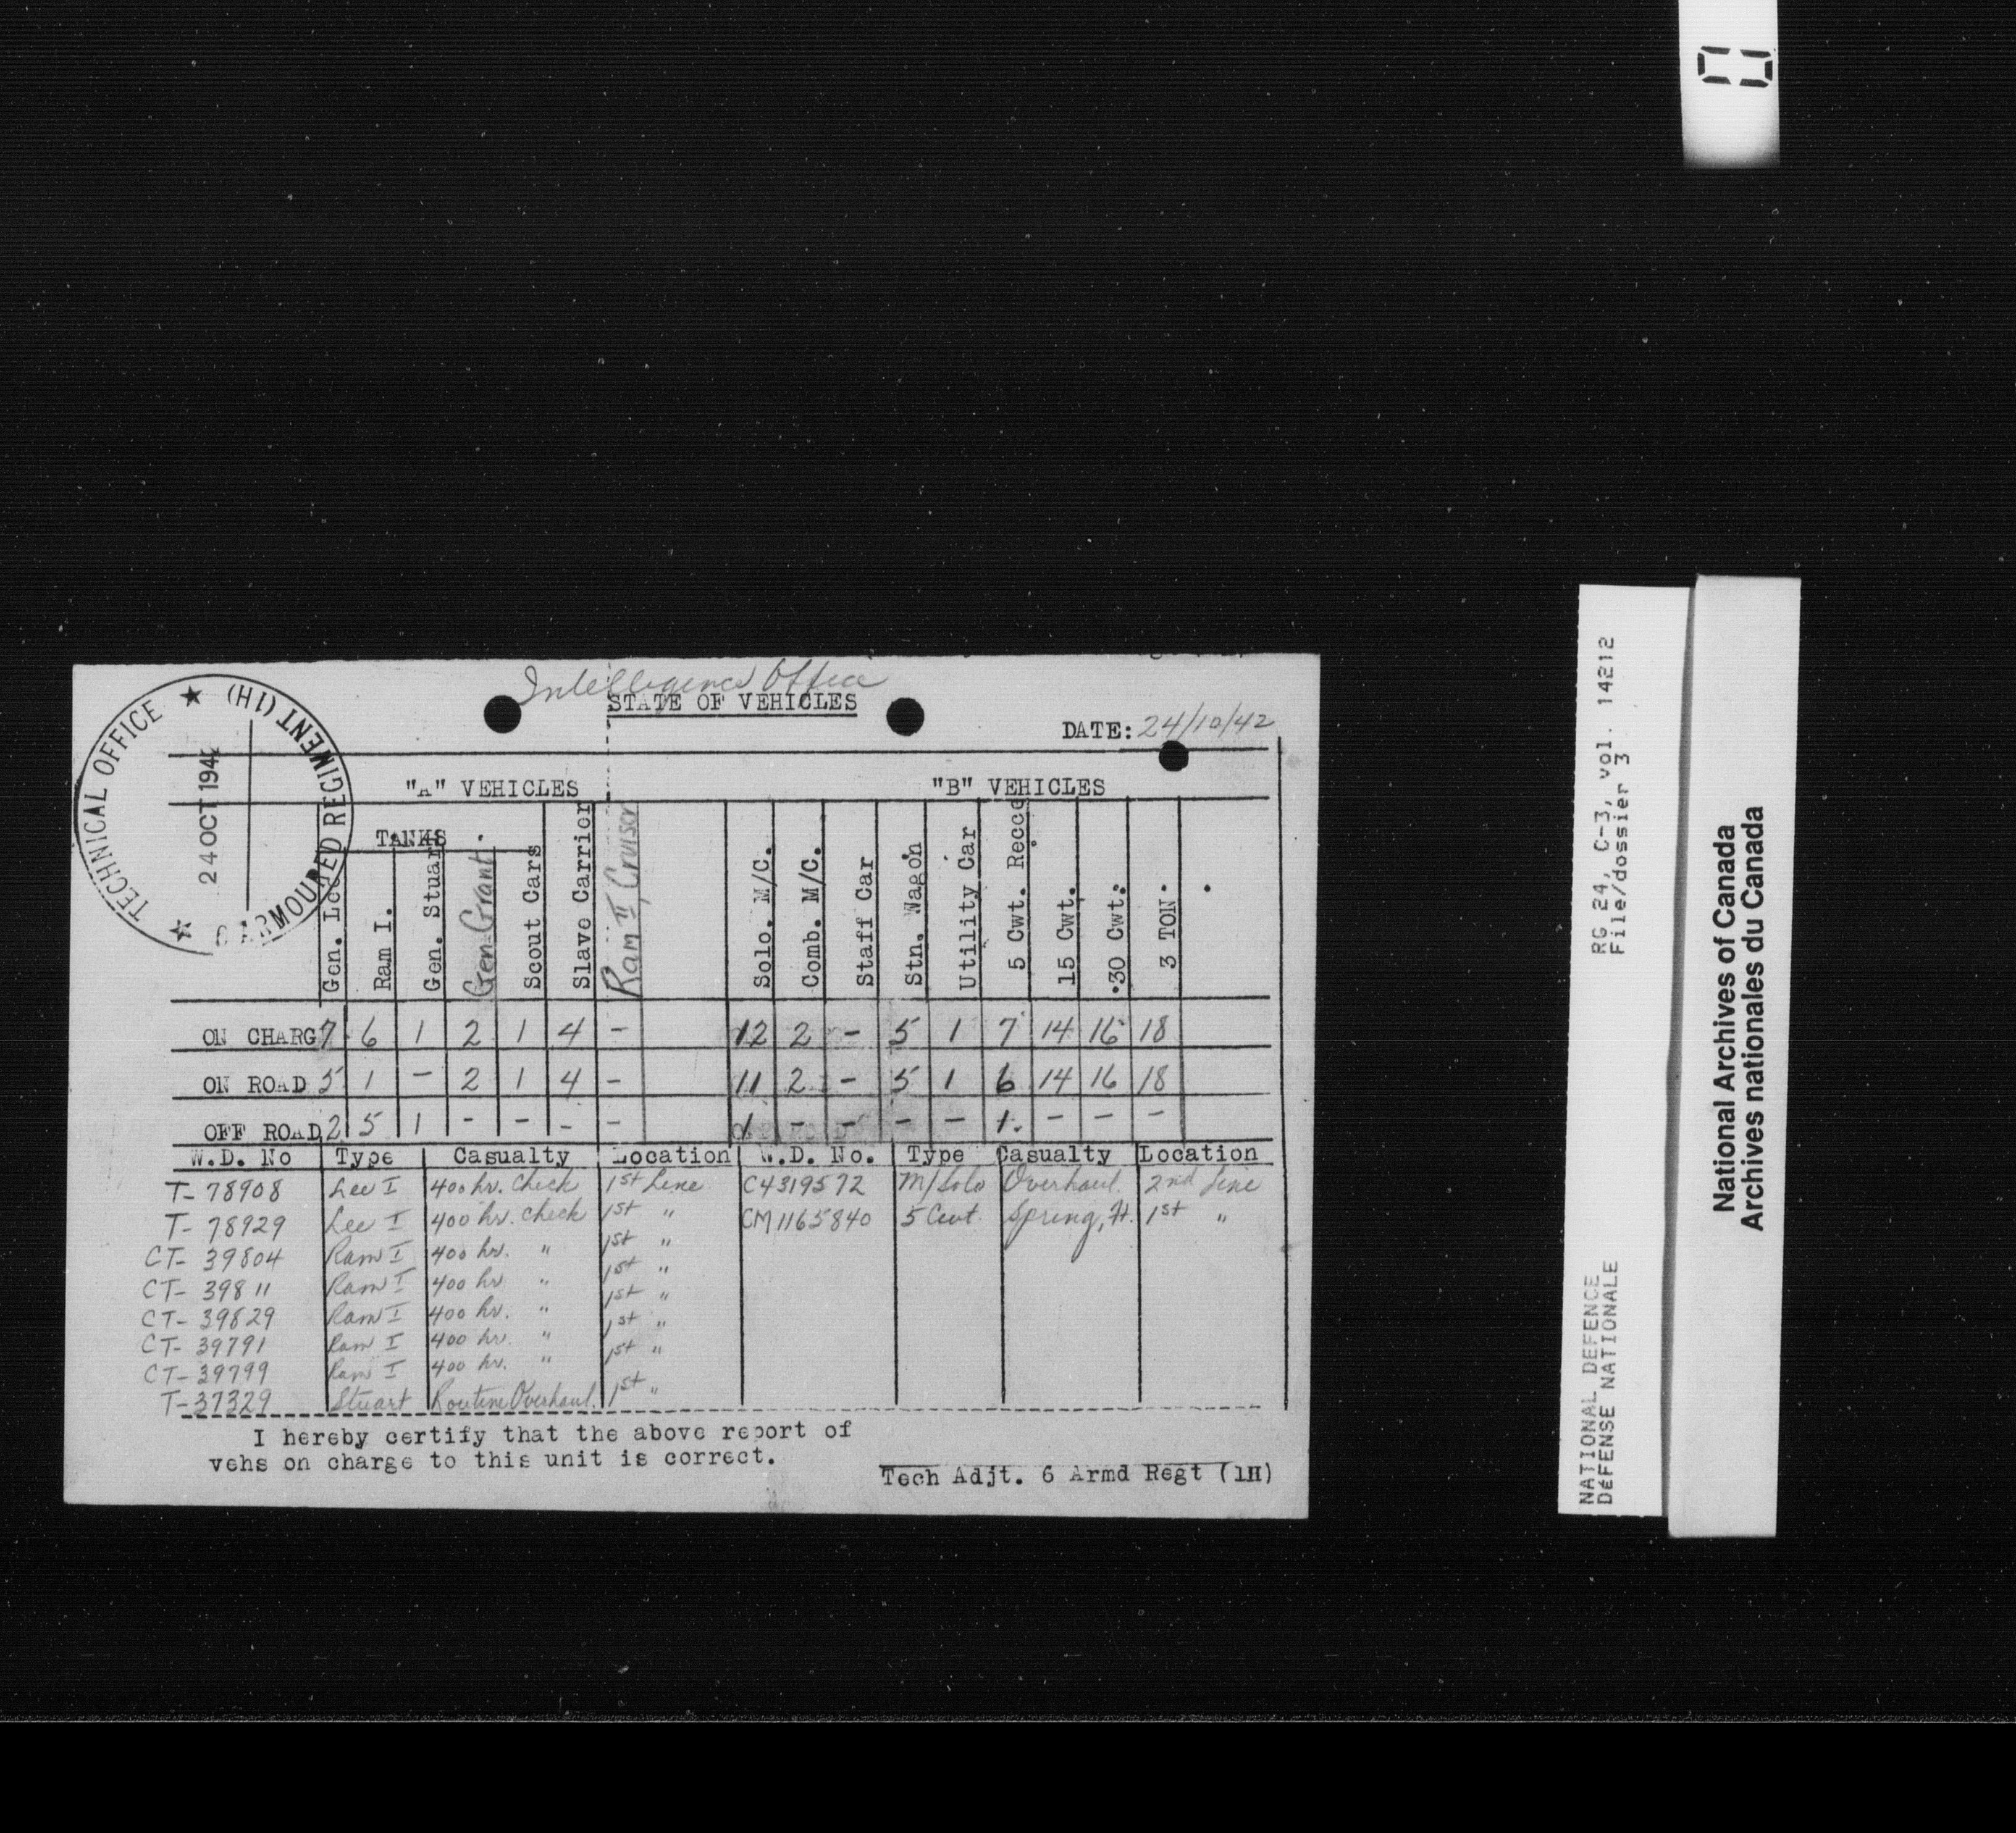 Intelligence Office
STATE OF VEHICLES
DATE: 24/10/42
TECHNICAL OFFICE ★ 6 ARMOURED REGIMENT (1H) ★
24 OCT 194
"A" VEHICLES
"B" VEHICLES
TANKS
Gen. Lee
Ram I.
Gen. Stuar
Gen. Grant.
Scout Cars
Slave Carrier
Ram II Cruiser
Solo. M/C.
Comb. M/C.
Staff Car
Stn. Wagon
Utility Car
5 Cwt. Recce
15 Cwt.
30 Cwt.
3 TON.
ON CHARG 7 6 1 2 1 4 - 12 2 - 5 1 7 14 16 18
ON ROAD 5 1 - 2 1 4 - 11 2 - 5 1 6 14 16 18
OFF ROAD 2 5 1 - - - - 1 - - - - 1. - - -
W.D. No Type Casualty Location W.D. No. Type Casualty Location
T- 78908 Lee I 400 hr. Check 1st Line C4319572 M/Solo Overhaul. 2nd Line
T- 78929 Lee I 400 hr. Check 1st " CM1165840 5 Cwt. Spring, Ft. 1st "
CT- 39804 Ram I 400 hr. " 1st "
CT- 39811 Ram I 400 hr. " 1st "
CT- 39829 Ram I 400 hr. " 1st "
CT- 39791 Ram I 400 hr. " 1st "
CT- 39799 Ram I 400 hr. " 1st "
T-37329 Stuart Routine Overhaul. 1st "
I hereby certify that the above report of
vehs on charge to this unit is correct.
Tech Adjt. 6 Armd Regt (1H)
NATIONAL DEFENCE
DÉFENSE NATIONALE
RG 24, C-3, vol. 14212
File/dossier 3
National Archives of Canada
Archives nationales du Canada